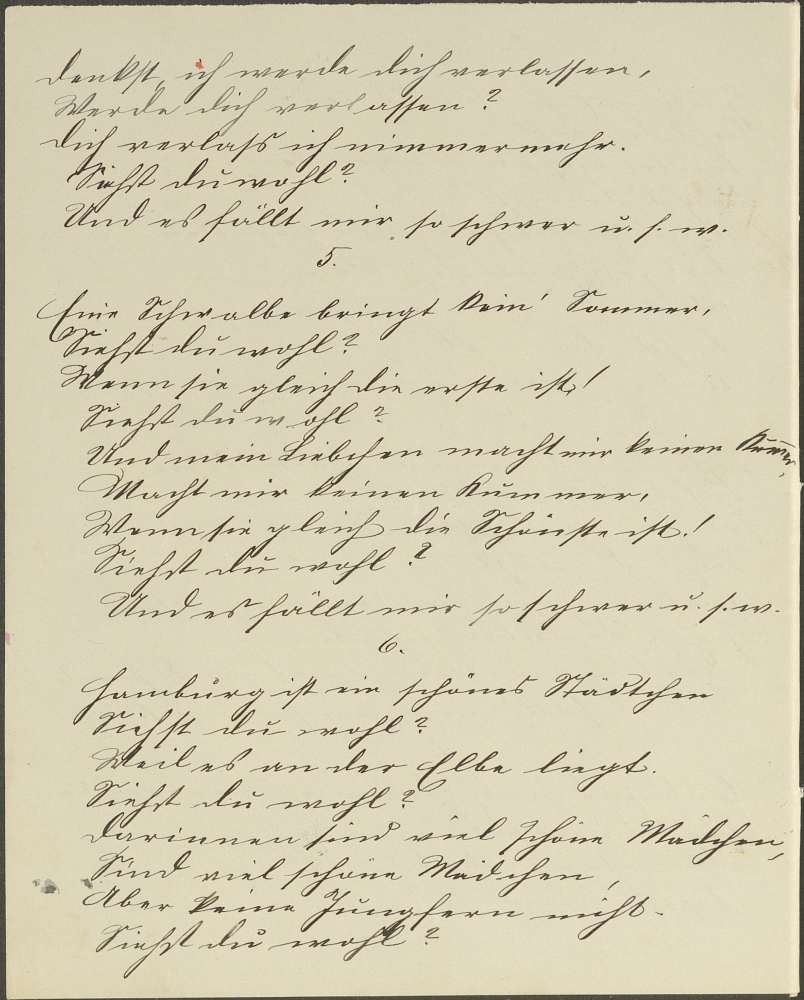 denkst, ich werde dich verlassen,
Werde dich verlassen?
Dich verlaß ich nimmermehr.
Siehst du wohl?
Und es fällt mir so schwer u. s. w.
5.
Eine Schwalbe bringt kein' Sommer,
Siehst du wohl?
Wenn sie gleich die erste ist!
Siehst du wohl?
Und mein Liebchen macht mir keinen Kum̄er,
Macht mir keinen Kummer,
Wenn sie gleich die Schönste ist!
Siehst du wohl?
Und es fällt mir so schwer u. s. w.
6.
Hamburg ist ein schönes Städtchen
Siehst du wohl?
Weil es an der Elbe liegt.
Siehst du wohl?
Darinnen sind viel schöne Mädchen,
Sind viel schöne Mädchen,
Aber keine Jungfern nicht.
Siehst du wohl?